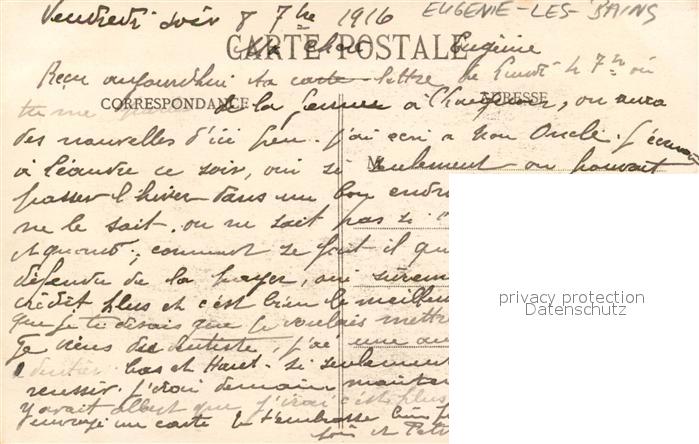 Vendredi soir 8 7bre 1916 EUGENIE-LES-BAINS
CARTE POSTALE
Ma chère Eugénie
Reçu aujourd'hui ta carte-lettre de Lundi 4 7bre où
tu me de la femme à on aura
CORRESPONDANCE ADRESSE
des nouvelles d'ici peu. j'ai écri a mon Oncle. j'écrirai
à Léandre ce soir, oui si seulement on pouvait
M
passer l'hiver dans un bon endr
ne le sait. on ne sait pas si
et quand; comment se fait il qu
défendu de la payer, oui sûrem
crédit plus et c'est bien le meilleu
que je te disais que je voulais mettr
Je viens du dentiste, j'ai une au
dentier bas et Haut. si seulement
reussir. j'irai demain
y avait albert que j'irai c'est plus
envoyé une carte Je t'embrasse bien f
fois et
privacy protection
Datenschutz